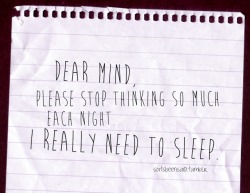 DEAR MIND,
PLEASE STOP THINKING SO MUCH
EACH NIGHT.
I REALLY NEED TO SLEEP.